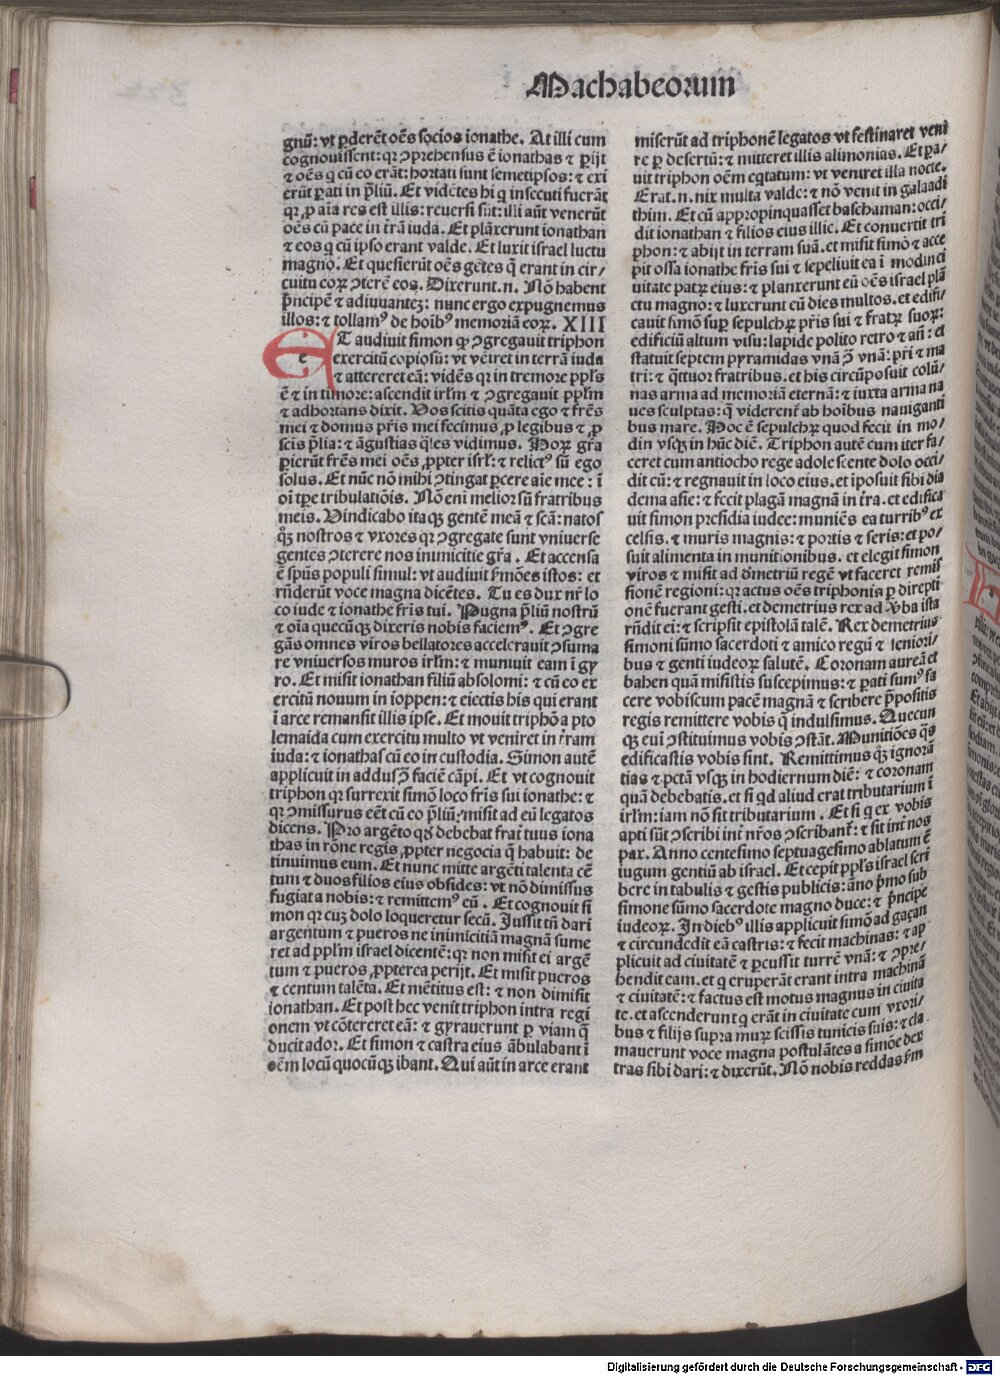 Machabeorum
gnū: vt ꝑderēt oēs socios ionathe. At illi cum
cognouissent: qꝛ ꝯprehensus ē ionathas ⁊ ꝑijt
⁊ oēs q cū eo erāt: hortati sunt semetipsos: ⁊ exi
erūt ꝑati in p̄liū. Et vidētes hi q insecuti fuerāt
qꝛ ꝓ aīa res est illis: reuersi sūt: illi aūt venerūt
oēs cū pace in trā iuda. Et plāxerunt ionathan
⁊ eos q cū ipso erant valde. Et luxit israel luctu
magno. Et quesierūt oēs gētes q̄ erant in cir/
cuitu eoꝝ ꝯterē eos. Dixerunt.n. Nō habent
p̄ncipē ⁊ adiuuantez: nunc ergo expugnemus
illos: ⁊ tollamꝰ de hoībꝰ memoriā eoꝝ. XIII
eT audiuit simon qꝙ ꝯgregauit triphon
exercitū copiosū: vt veīret in terrā iuda
⁊ attereret eā: vidēs qꝛ in tremore ppl's
ē ⁊ in timore: ascendit irl'm ⁊ ꝯgregauit ppl'm
⁊ adhortans dixit. Vos scitis quāta ego ⁊ frēs
mei ⁊ domus pr̄is mei fecimus ꝓ legibus ⁊ ꝓ
scis p̄lia: ⁊ āgustias q̄les vidimus. Hoꝝ gr̄a
ꝑierūt frēs mei oēs ꝓpter isrl': ⁊ relictꝰ sū ego
solus. Et nūc nō mihi ꝯtingat ꝑcere aīe mee: ī
oī tꝑe tribulatiōis. Nō enī melior sū fratribus
meis. Vindicabo itaqꝫ gentē meā ⁊ scā: natos
qꝫ nostros ⁊ vxores qꝛ ꝯgregate sunt vniuerse
gentes ꝯterere nos inimicitie gr̄a. Et accensa
ē sp̄us populi simul: vt audiuit ẜmōes istos: et
rn̄derūt voce magna dicētes. Tu es dux nr̄ lo
co iude ⁊ ionathe fr̄is tui. Pugna p̄liū nostrū
⁊ oīa quecūqꝫ dixeris nobis faciemꝰ. Et ꝯgre
gās omnes viros bellatores accelerauit ꝯsuma
re vniuersos muros irl'm: ⁊ muniuit eam ī gy
ro. Et misit ionathan filiū absolomi: ⁊ cū eo ex
ercitū nouum in ioppen: ⁊ eiectis his qui erant
ī arce remansit illis ipse. Et mouit triphō a pto
lemaida cum exercitu multo vt veniret in t̄ram
iuda: ⁊ ionathas cū eo in custodia. Simon autē
applicuit in addus ꝯ̄ faciē cāpi. Et vt cognouit
triphon qꝛ surrexit simō loco fr̄is sui ionathe: ⁊
qꝛ ꝯmissurus eēt cū eo p̄liū: misit ad eū legatos
dicens. Pro argēto qꝺ debebat frat̄ tuus iona
thas in rōne regis ꝓpter negocia q̄ habuit: de
tinuimus eum. Et nunc mitte argēti talenta cē
tum ⁊ duos filios eius obsides: vt nō dimissus
fugiat a nobis: ⁊ remittemꝰ eū. Et cognouit si
mon qꝛ cuꝫ dolo loqueretur secū. Jussit tn̄ dari
argentum ⁊ pueros ne inimicitiā magnā sume
ret ad ppl'm israel dicentē: qꝛ non misit ei argē
tum ⁊ pueros ꝓpterea perijt. Et misit pueros
⁊ centum talēta. Et mētitus est: ⁊ non dimisit
ionathan. Et post hec venit triphon intra regi
onem vt cōtereret eā: ⁊ gyrauerunt ꝑ viam q̄
ducit ador. Et simon ⁊ castra eius ābulabant ī
oēm locū quocūqꝫ ibant. Qui aūt in arce erant
miserūt ad triphonē legatos vt festinaret veni
re ꝑ desertū: ⁊ mitteret illis alimonias. Et ꝑa/
uit triphon oēm eq̄tatum: vt veniret illa nocte.
Erat.n. nix multa valde: ⁊ nō venit in galaadi
thim. Et cū appropinquasset baschaman: occi/
dit ionathan ⁊ filios eius illic. Et conuertit tri
phon: ⁊ abijt in terram suā. et misit simō ⁊ acce
pit ossa ionathe fr̄is sui ⁊ sepeliuit ea ī modin ci
uitate patꝝ eius: ⁊ planxerunt eū oēs israel plā
ctu magno: ⁊ luxerunt cū dies multos. et edifi/
cauit simō suꝑ sepulchꝝ pr̄is sui ⁊ fratꝝ suoꝝ:
edificiū altum visu: lapide polito retro ⁊ añ: et
statuit septem pyramidas vnā ꝯ̄ vnā: pr̄i ⁊ ma
tri: ⁊ q̄ttuor fratribus. et his circūposuit colū/
nas arma ad memoriā eternā: ⁊ iuxta arma na
ues sculptas: q̄ viderenť ab hoībus nauiganti
bus mare. Hoc ē sepulchꝝ quod fecit in mo/
din vsqꝫ in hūc diē. Triphon autē cum iter fa/
ceret cum antiocho rege adolescente dolo occi/
dit cū: ⁊ regnauit in loco eius. et īposuit sibi dia
dema asie: ⁊ fecit plagā magnā in t̄ra. et edifica
uit simon presidia iudee: muniēs ea turribꝰ ex
celsis. ⁊ muris magnis: ⁊ portis ⁊ seris: et po/
suit alimenta in munitionibus. et elegit simon
viros ⁊ misit ad dmetriū regē vt faceret remis
sionē regioni: qꝛ actus oēs triphonis ꝑ direpti
onē fuerant gesti. et demetrius rex ad v̄ba ista
rn̄dit ei: ⁊ scripsit epistolā talē. Rex demetrius
simoni sūmo sacerdoti ⁊ amico regū ⁊ seniori/
bus ⁊ genti iudeoꝝ salutē. Coronam aureā et
bahen quā misistis suscepimus: ⁊ ꝑati sumꝰ fa
cere vobiscum pacē magnā ⁊ scribere p̄positis
regis remittere vobis q̄ indulsimus. Quecun
qꝫ eni ꝯstituimus vobis ꝯstāt. Munitiōes q̄s
edificastis vobis sint. Remittimus qꝫ ignorā
tias ⁊ pctā vsqꝫ in hodiernum diē: ⁊ coronam
quā debebatis. et si qd aliud erat tributarium ī
irl'm: iam nō sit tributarium. Et si q ex vobis
apti sūt ꝯscribi int̄ nr̄os ꝯscribanť: ⁊ sit int̄ nos
pax. Anno centesimo septuagesimo ablatum ē
iugum gentiū ab israel. Et cepit ppl's israel scri
bere in tabulis ⁊ gestis publicis: āno p̄mo sub
simone sūmo sacerdote magno duce: ⁊ p̄ncipe
iudeoꝝ. In diebꝰ illis applicuit simō ad gaçan
⁊ circundedit eā castris: ⁊ fecit machinas: ⁊ ap
plicuit ad ciuitatē ⁊ ꝑcussit turrē vnā: ⁊ ꝯpre/
hendit eam. et q eruperāt erant intra machinā
⁊ ciuitatē: ⁊ factus est motus magnus in ciuita
te. et ascenderunt q erāt in ciuitate cum vxori/
bus ⁊ filijs supra muꝝ scissis tunicis suis: ⁊ cla
mauerunt voce magna postulātes a simōe dex
tras sibi dari: ⁊ dixerūt. Nō nobis reddas ẜm
Digitalisierung gefördert durch die Deutsche Forschungsgemeinschaft - DFG